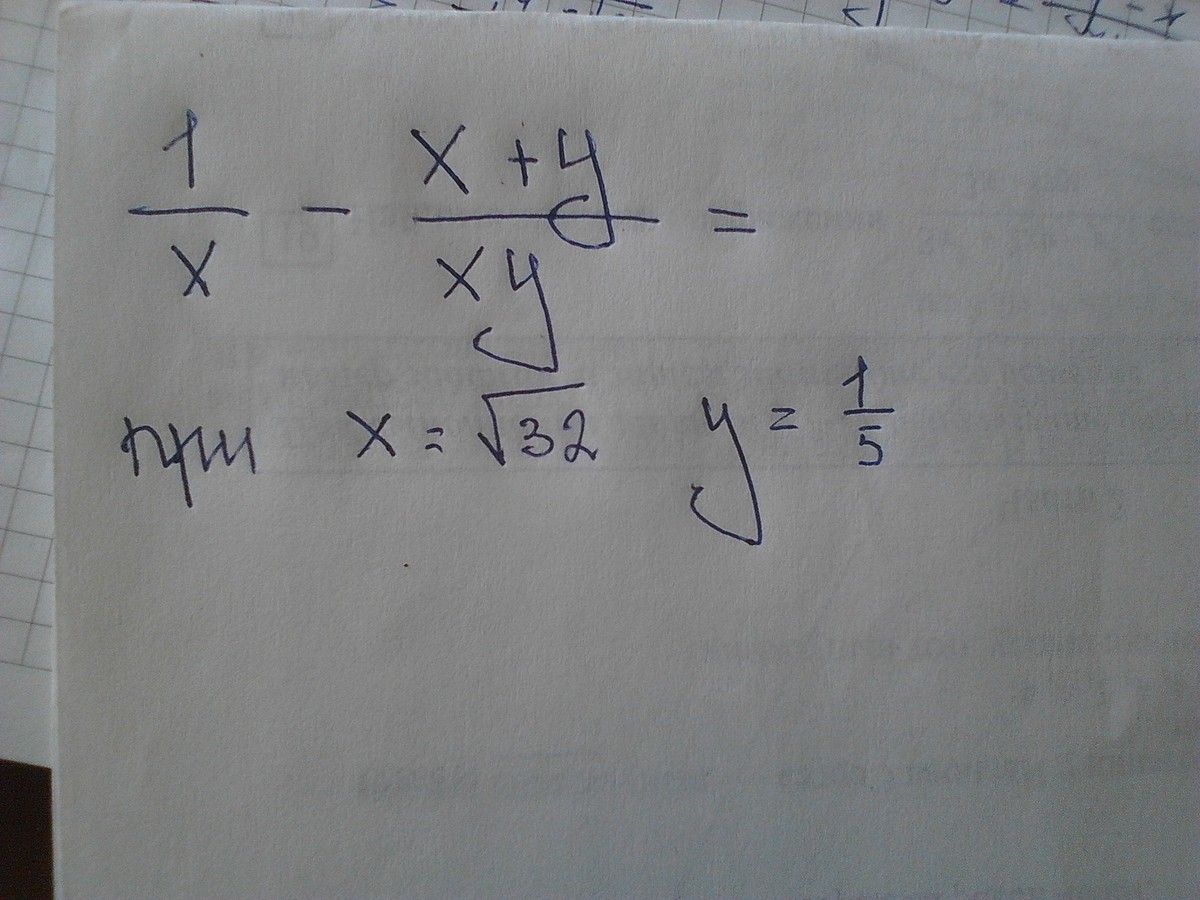 1/x - x+y/xy =
при x = √32 y = 1/5